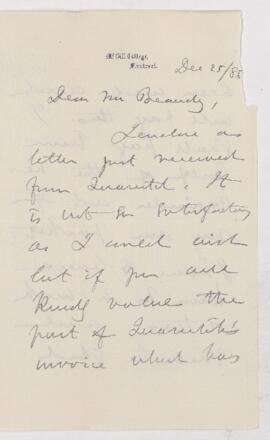 McGill College,
Montreal.
Dec 25/88
Dear Mr Beaudry,
I enclose a
letter just received
from Quaritch. It
is not so satisfactory
as I could wish
but if you will
kindly value the
part of Quaritch's
invoice which has